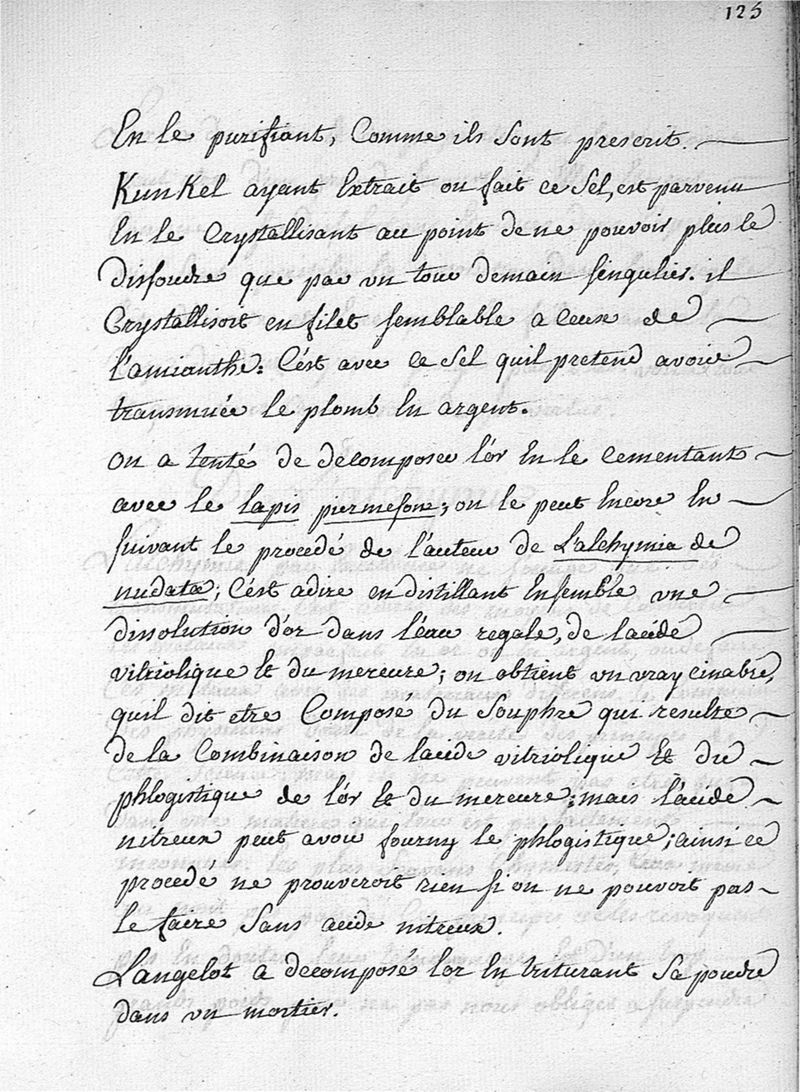 125
En le purifiant, Comme ils Sont prescrit.
Kunkel ayant Extrait ou fait ce Sel, est parvenu
En le Crystallisant au point de ne pouvoir plus le
dissoudre que par un tour demain singulier. il
Crystallisoit en filet semblable a Ceux de
l'amianthe: C'ést avec ce Sel quil pretend avoir
transmuée le plomb En argent.
on a tenté de decomposer l'ór En le cementant
avec le lapis piermeson; on le peut Encore En
suivant le procedé de l'auteur de L'alchymia de
nudata; C'ést adire en distillant Ensemble une
dissolution d'or dans l'éau regale, de lacide
vitriolique Et du mercure; on obtient un vray cinabre,
quil dit etre Composé du Souphre qui resulte
de la Combinaison de lacide vitriolique Et du
phlogistique de l'ór Et du mercure; mais l'ácide
nitreux peut avoir fourny le phlogistique; ainsi ce
procedé ne prouveroit rien si on ne pouvoit pas
le faire Sans acide nitreux.
Langelot a decomposé lor En triturant Sa poudre
dans un mortier.